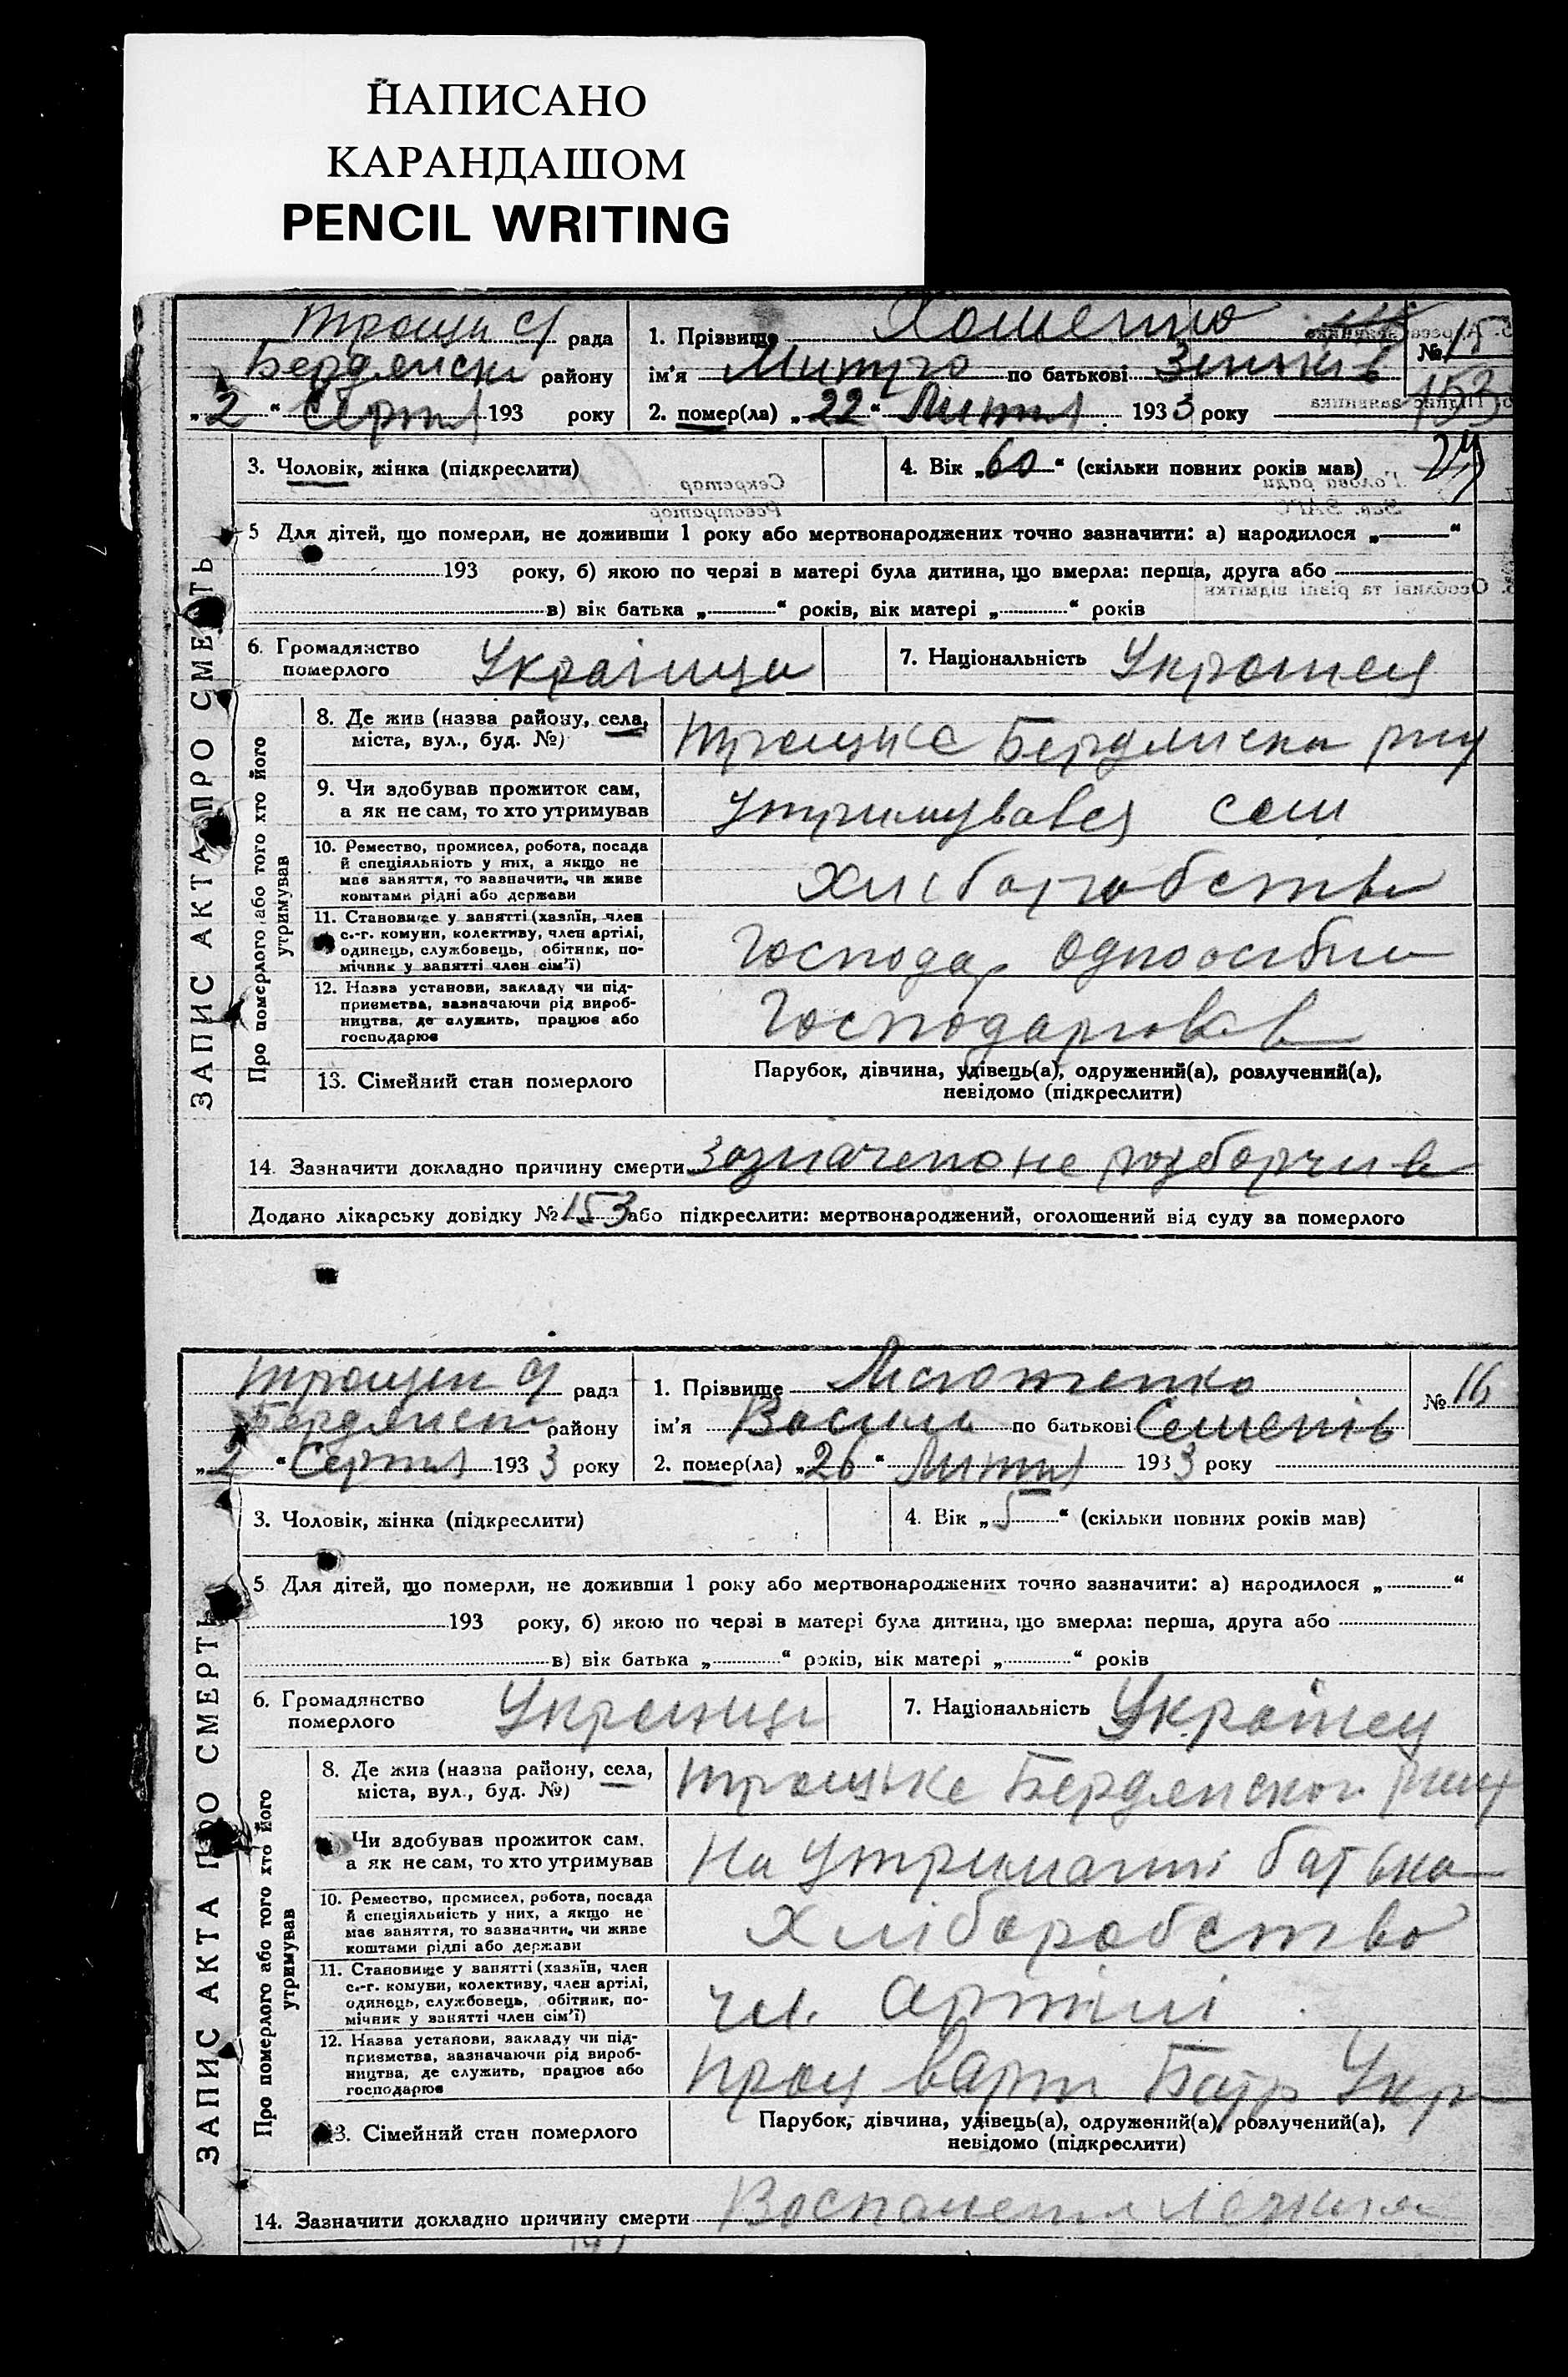 НАПИСАНО
КАРАНДАШОМ
PENCIL WRITING
рада
району
„2“ Серпня 193 року
1. Прізвище
№ 15
ім'я Митро по батькові
153
2. помер(ла) „22“ Лютня 1933 року
3. Чоловік, жінка (підкреслити)
4. Вік „60“ (скільки повних років мав)
24
5 Для дітей, що померли, не доживши 1 року або мертвонароджених точно зазначити: а) народилося „ “
193 року, б) якою по черзі в матері була дитина, що вмерла: перша, друга або
в) вік батька „ “ років, вік матері „ “ років
6. Громадянство
померлого
Українци
7. Національність Українец
ЗАПИС АКТА ПРО СМЕРТЬ
Про померлого або того хто його
утримував
8. Де жив (назва району, села,
міста, вул., буд. №)
Троицке Бердянська
9. Чи здобував прожиток сам,
а як не сам, то хто утримував
утримувався сам
10. Ремество, промисел, робота, посада
й спеціяльність у них, а якщо не
має заняття, то зазначити, чи живе
коштами рідні або держави
Хлиборобство
11. Становище у занятті (хазяїн, член
с.-г. комуни, колективу, член артілі,
одинець, службовець, обітник, по-
мічник у занятті член сім'ї)
Господар одноосібни
12. Назва установи, закладу чи під-
приємства, зазначаючи рід вироб-
ництва, де служить, працює або
господарює
Господарював
13. Сімейний стан померлого
Парубок, дівчина, удівець(а), одружений(а), розлучений(а),
невідомо (підкреслити)
14. Зазначити докладно причину смерти зазначено не розборчиво
Додано лікарську довідку № 153 або підкреслити: мертвонароджений, оголошений від суду за померлого
рада
району
„2“ Серпня 1933 року
1. Прізвище
№ 16
ім'я Василь по батькові Семенів
2. помер(ла) „26“ Лютня 1933 року
3. Чоловік, жінка (підкреслити)
4. Вік „5“ (скільки повних років мав)
5 Для дітей, що померли, не доживши 1 року або мертвонароджених точно зазначити: а) народилося „ “
193 року, б) якою по черзі в матері була дитина, що вмерла: перша, друга або
в) вік батька „ “ років, вік матері „ “ років
6. Громадянство
померлого
Українци
7. Національність Українец
ЗАПИС АКТА ПРО СМЕРТЬ
Про померлого або того хто його
утримував
8. Де жив (назва району, села,
міста, вул., буд. №)
Троицьке Бердянского
Чи здобував прожиток сам,
а як не сам, то хто утримував
На утриманні батька
10. Ремество, промисел, робота, посада
й спеціяльність у них, а якщо не
має заняття, то зазначити, чи живе
коштами рідні або держави
Хліборобство
11. Становище у занятті (хазяїн, член
с.-г. комуни, колективу, член артілі,
одинець, службовець, обітник, по-
мічник у занятті член сім'ї)
чл. артілі
12. Назва установи, закладу чи під-
приємства, зазначаючи рід вироб-
ництва, де служить, працює або
господарює
13. Сімейний стан померлого
Парубок, дівчина, удівець(а), одружений(а), розлучений(а),
невідомо (підкреслити)
14. Зазначити докладно причину смерти Воспаления